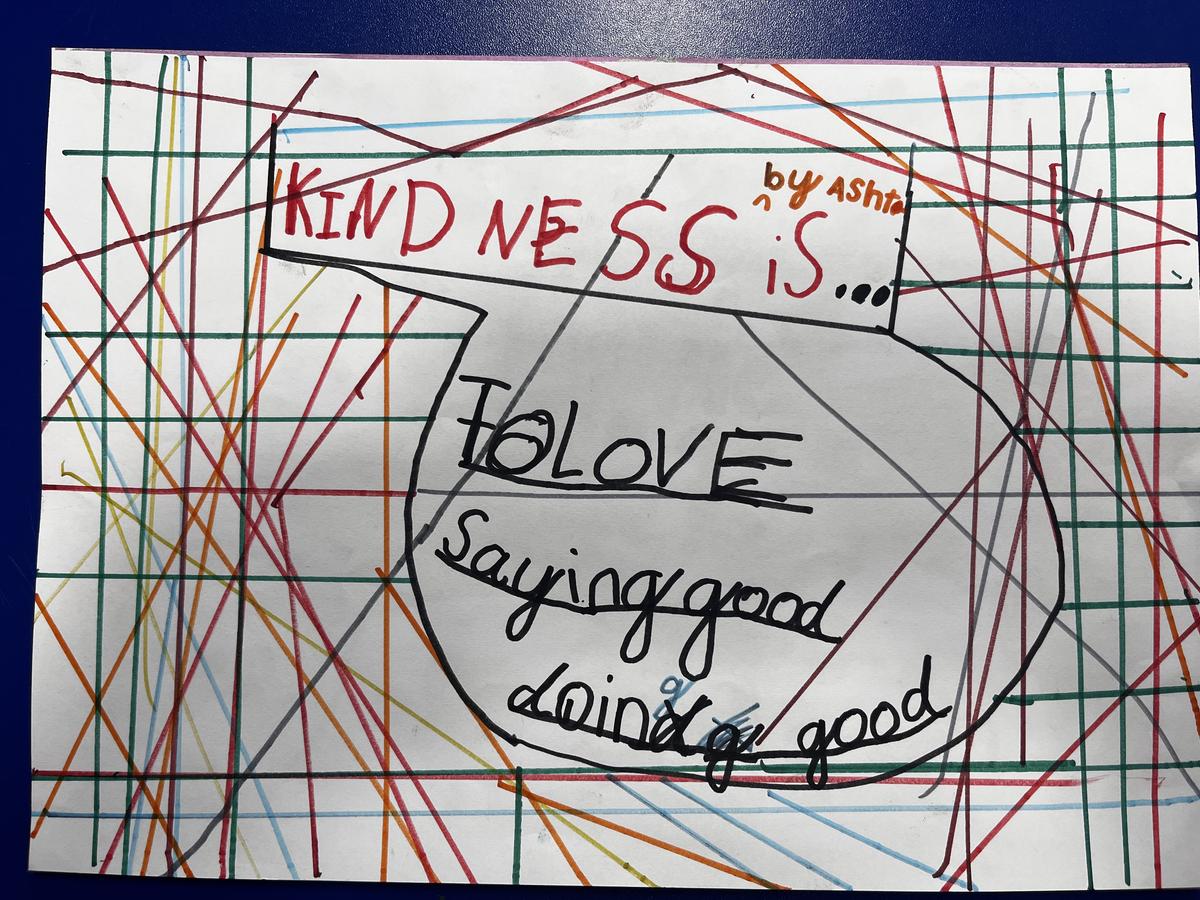 KINDNESS iS...
by AShta
TO LOVE
Saying good
doing good